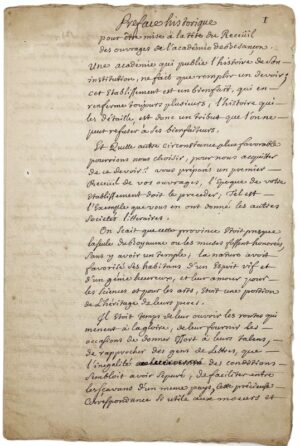 1
Preface historique
pour être mise à la tête du Recüeil
des ouvrages de l'académie de Besançon.
Une académie qui publie l'histoire de son
institution, ne fait que remplir un devoir;
cet Etablissement est un bienfait, qui en
renferme toujours plusieurs; l'histoire qui
les détaille, est donc un tribut que l'on ne
peut refuser à ses bienfaiteurs.
Et Quelle autre circonstance plus favorable
pourrions nous choisir, pour nous acquitter
de ce devoir? vous préparés un premier
Recueil de vos ouvrages, l'époque de votre
établissement doit le preceder; Tel est
l'Exemple que vous en ont donné les autres
Societés littéraires.
On Scait que cette province étoit presque
la seule du Royaume ou les muses fussent honorées,
Sans y avoir un temple; la nature avoit
favorisé ses habitans d'un Esprit vif et
d'un génie heureux, et leur amour pour
les Sciences et pour les arts, étoit une portion
de L'héritage de leurs peres.
Il Etoit temps de leur ouvrir les routes qui
mènent à la gloire, de leur fournir les
occasions de donner l'Essort à leurs talens,
de rapprocher des gens de Lettres, que
l'inégalité des conditions
Sembloit avoir Separés, de faciliter entre
les Scavans d'un meme pays, cette précieuse
Correspondance Si utile aux moeurs et